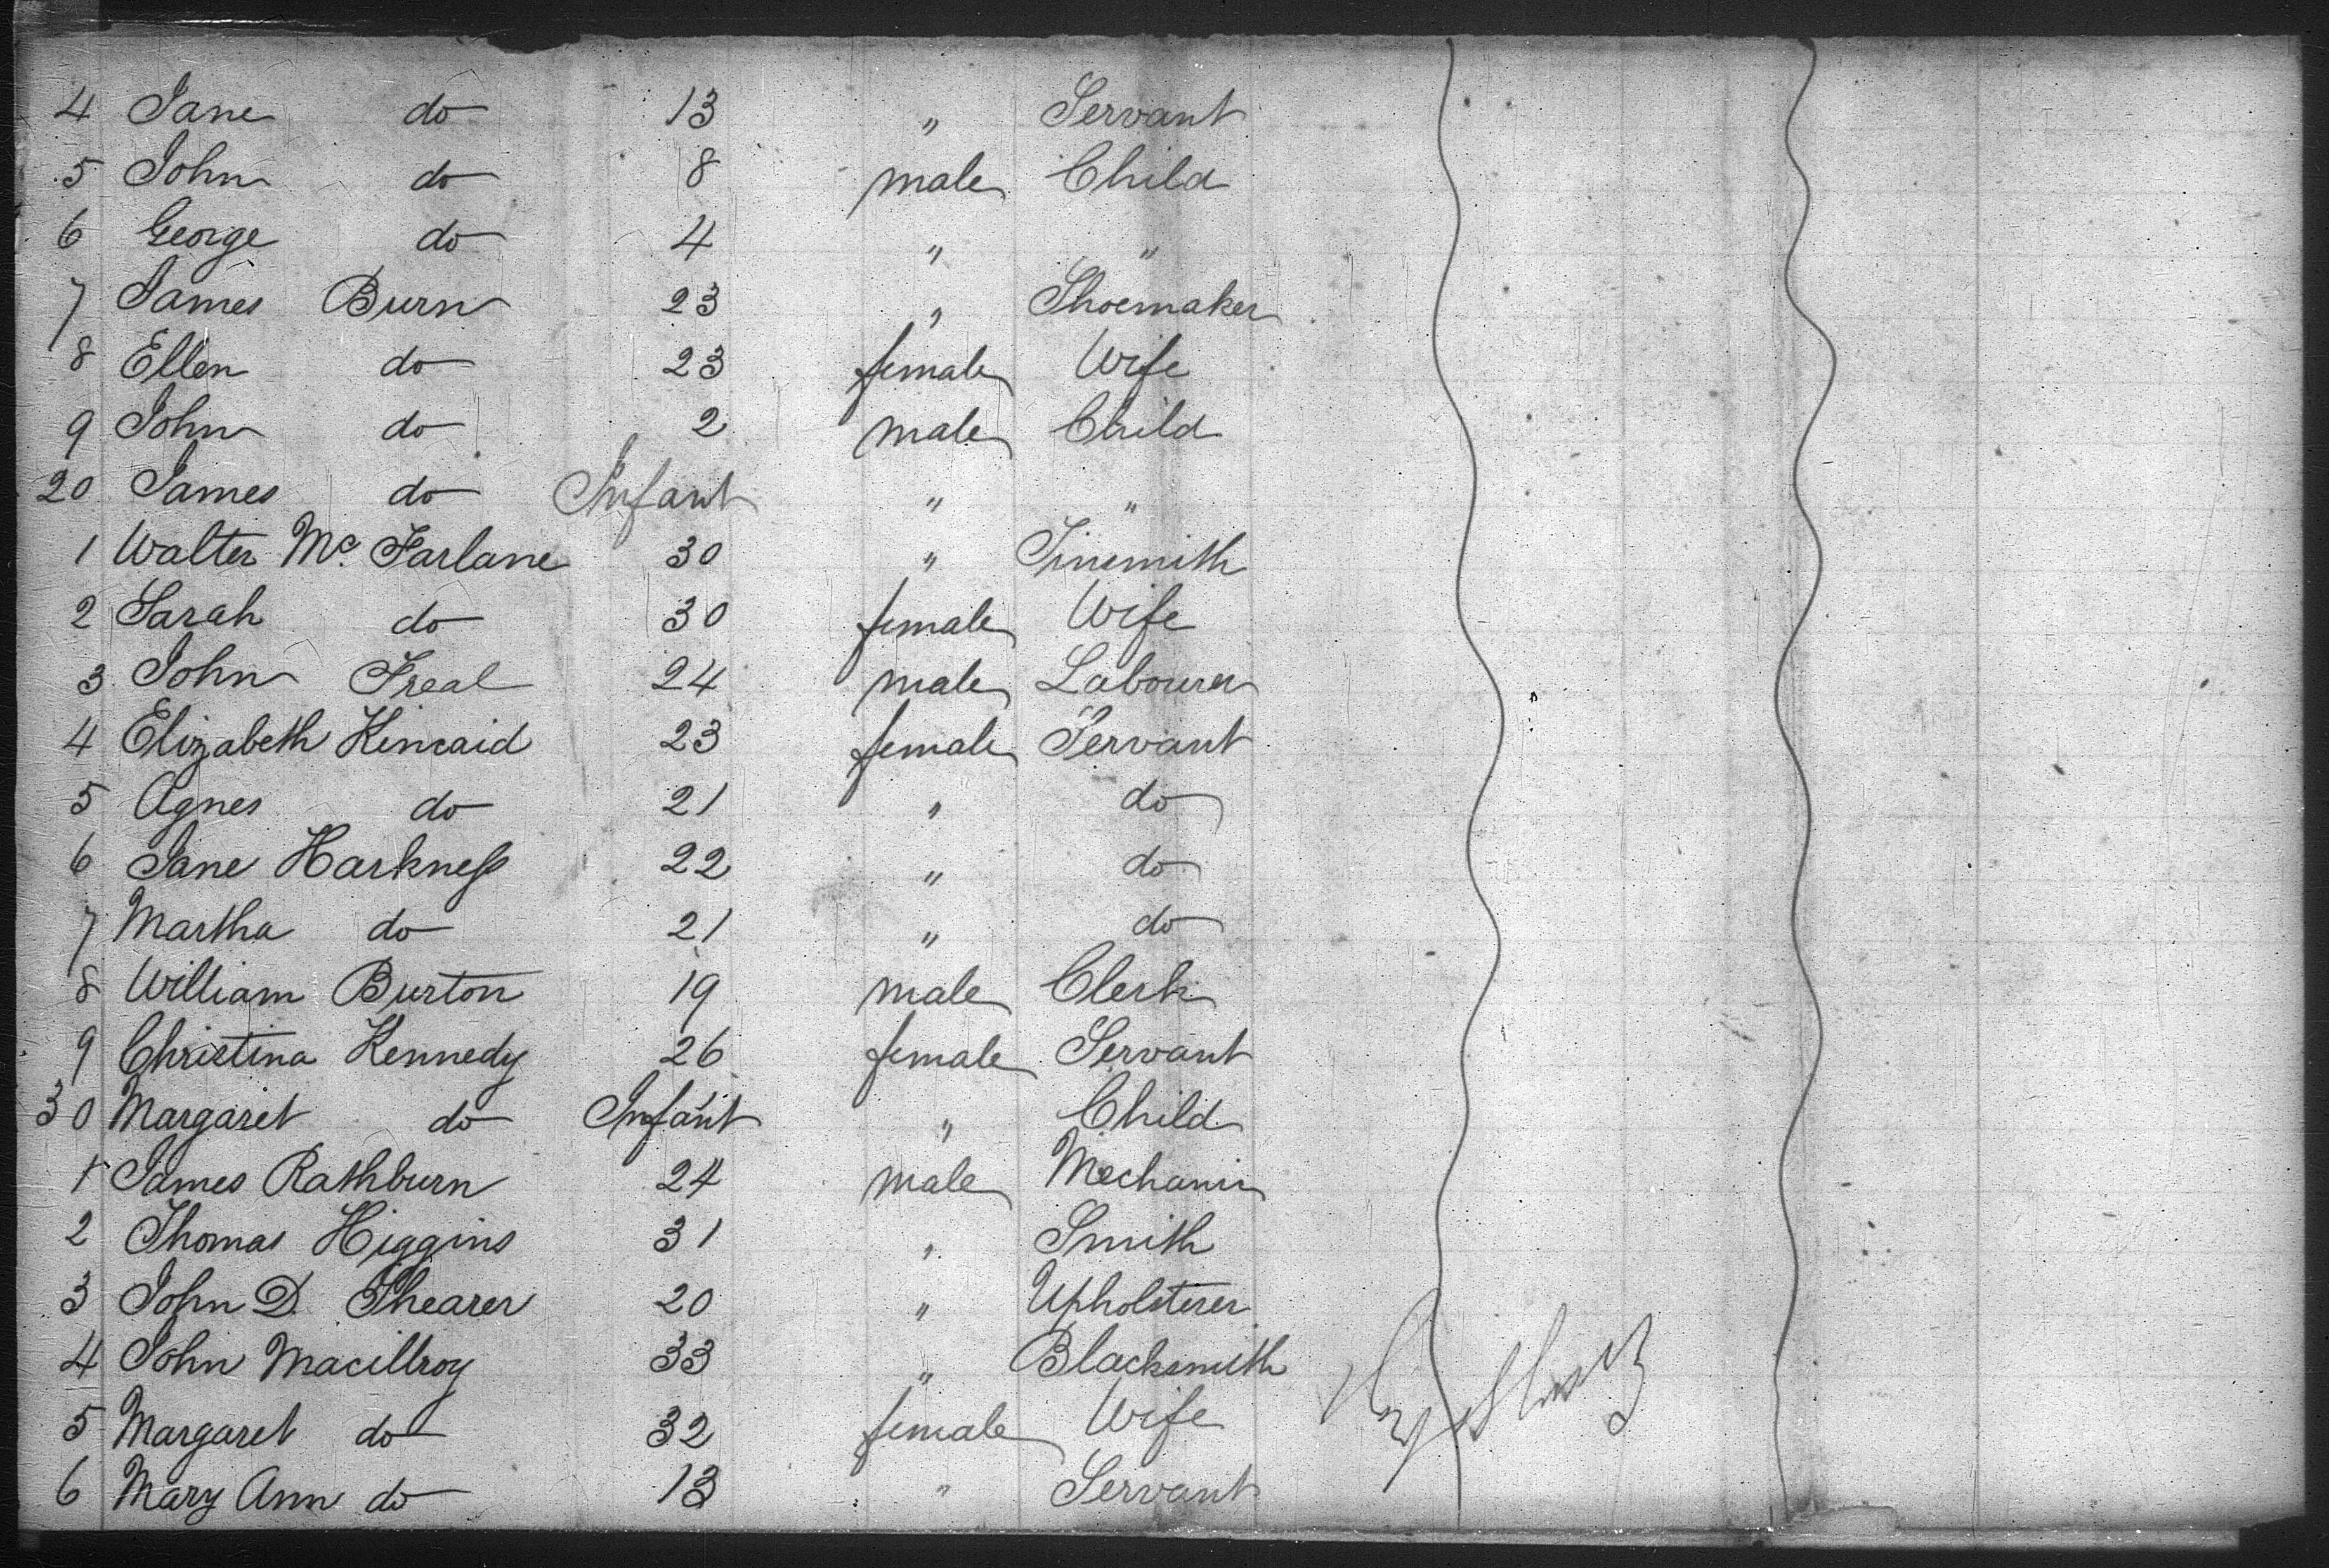 4 Jane do 13 " Servant
5 John do 8 male Child
6 George do 4 " "
7 James Burn 23 " Shoemaker
8 Ellen do 23 female Wife
9 John do 2 male Child
20 James do Infant " "
1 Walter Mc. Farlane 30 " Tinsmith
2 Sarah do 30 female Wife
3 John Freal 24 male Labourer
4 Elizabeth Kincaid 23 female Servant
5 Agnes do 21 " do
6 Jane Harkness 22 " do
7 Martha do 21 " do
8 William Burton 19 male Clerk
9 Christina Kennedy 26 female Servant
30 Margaret do Infant " Child
1 James Rathburn 24 male Mechanic
2 Thomas Higgins 31 " Smith
3 John D. Shearer 20 " Upholsterer
4 John Macillroy 33 " Blacksmith
5 Margaret do 32 female Wife
6 Mary Ann do 13 " Servant